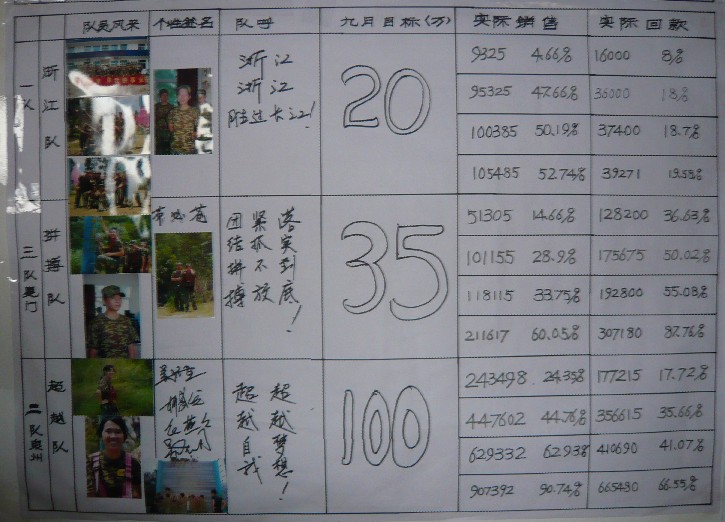 队员风采 个性签名 队呼 九月目标(万) 实际销售 实际回款
浙江队
浙江
浙江
胜过长江!
20
9325 4.66% 16000 8%
95325 47.66% 36000 18%
100385 50.19% 37400 18.7%
105485 52.74% 39271 19.53%
拼搏队
团结拼搏
紧抓不放
落实到底!
35
51305 14.66% 128200 36.63%
101155 28.9% 175675 50.02%
118115 33.75% 192800 55.03%
211617 60.05% 307180 87.76%
超越队
超越自我
超越梦想!
100
243498 24.35% 177215 17.72%
447602 44.76% 356615 35.66%
629332 62.93% 410690 41.07%
907392 90.74% 665480 66.55%